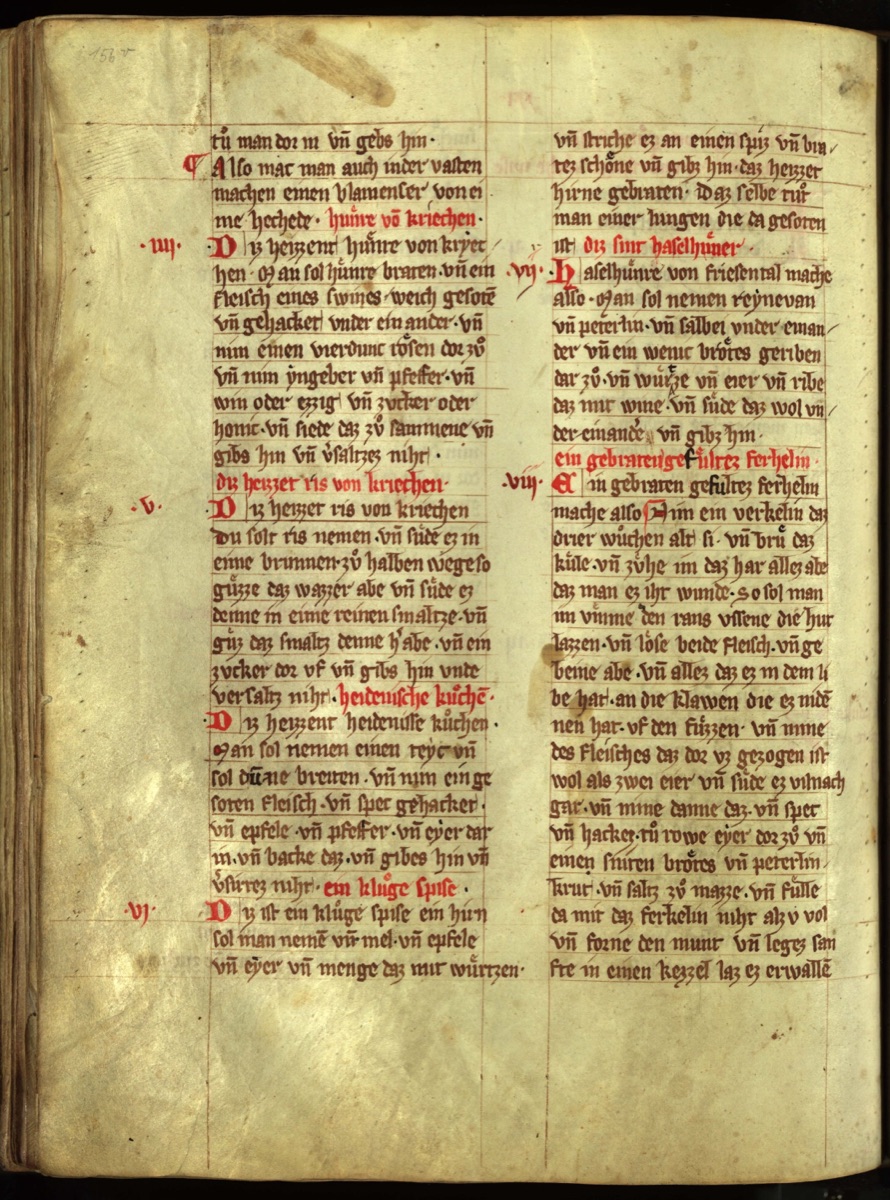 156 v
tuͦ man dor in vn̄ gebs hin ·
¶ Also mac man auch inder vasten
machen einen blamenser von ei
me hechede · huͤnre vō kriechen ·
· iiii · Diz heizzent huͤnre von kryec
hen · Man sol huͤnre braten · vn̄ ein
fleisch eines swines · weich gesotē
vn̄ gehacket vnder ein ander · vn̄
nim einen vierdunc roͤsen dor zuͦ
vn̄ nim yngeber vn̄ pfeffer · vn̄
win oder ezzig vn̄ zvcker oder
honic · vn̄ siede daz zuͦ sammene vn̄
gibs hin vn̄ v̓saltzez niht ·
diz heizzet ris von kriechen ·
· v · Diz heizzet ris von kriechen
Du solt ris nemen · vn̄ suͤde ez in
eime brunnen · zuͦ halben wege so
guͤzze daz wazzer abe vn̄ suͤde ez
denne in eime reinen smaltze · vn̄
guͤz daz smaltz denne h̓abe · vn̄ ein
zvcker dor vf vn̄ gibs hin vnde
versaltz niht · heidenische kuͦchē ·
· Diz heizzent heidenisse kuͦchen ·
Man sol nemen einen teyc vn̄
sol duͤnne breiten · vn̄ nim ein ge
soten fleisch · vn̄ spec gehacket ·
vn̄ epfele · vn̄ pfeffer · vn̄ eyer dar
in · vn̄ backe daz · vn̄ gibes hin vn̄
v̓sirtez niht · ein kluͦge spise ·
· vi · Diz ist ein kluͦge spise ein hirn
sol man nemē vn̄ mel · vn̄ epfele
vn̄ eyer vn̄ menge daz mit wuͤrtzen ·
vn̄ striche ez an einen spiz vn̄ bra
tez schoͤne vn̄ gibz hin · daz heizzet
hirne gebraten · Daz selbe tuͦt
man einer lungen die da gesoten
ist · diz sint haselhuͤner ·
· vii · Haselhuͤnre von friesental mache
also · Man sol nemen reynevan
vn̄ peterlin · vn̄ salbei vnder einan
der vn̄ ein wenic broͤtes geriben
dar zuͦ · vn̄ wuͤrze vn̄ eier vn̄ ribe
daz mit wine · vn̄ suͤde daz wol vn̄
der einand̓ vn̄ gibz hin ·
ein gebraten gefuͤltez ferhelin ·
· viii · Ein gebraten gefultez ferhelin
mache also Nim ein verkelin daz
drier wuͦchen alt si · vn̄ bruͤ daz
kuͤle · vn̄ zuͤhe im daz har allez abe
daz man ez iht wunde · So sol man
im vmme den rans vssene die hut
lazzen · vn̄ loͤse beide fleisch · vn̄ ge
beine abe · vn̄ allez daz ez in dem li
be hat · an die klawen die ez nidē
nen hat · vf den fuͤzzen · vn̄ nime
des fleisches daz dor vz gezogen ist
wol als zwei eier vn̄ suͤde ez vilnach
gar · vn̄ nime danne daz · vn̄ spec
vn̄ hackez · tuͦ rowe eyer dor zuͦ vn̄
einen sniten broͤtes vn̄ peterlin ·
krut · vn̄ saltz zuͦ mazze · vn̄ fuͤlle
da mit daz ferkelin niht alzv vol
vn̄ forne den munt vn̄ legez san
fte in einen kezzel laz ez erwallē